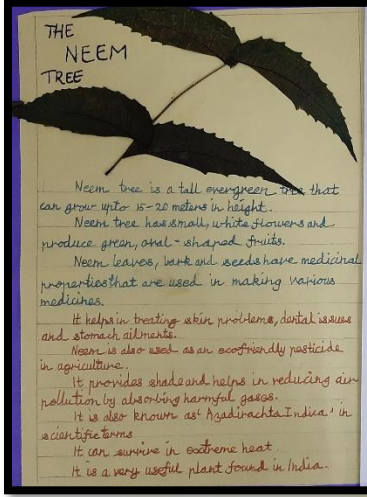 THE
NEEM
TREE
Neem tree is a tall evergreen tree that
can grow upto 15-20 meters in height.
Neem tree has small, white flowers and
produce green, oval-shaped fruits.
Neem leaves, bark and seeds have medicinal
properties that are used in making various
medicines.
It helps in treating skin problems, dental issues
and stomach ailments.
Neem is also used as an ecofriendly pesticide
in agriculture.
It provides shade and helps in reducing air
pollution by absorbing harmful gases.
It is also known as 'Azadirachta Indica' in
scientific terms
It can survive in extreme heat.
It is a very useful plant found in India.